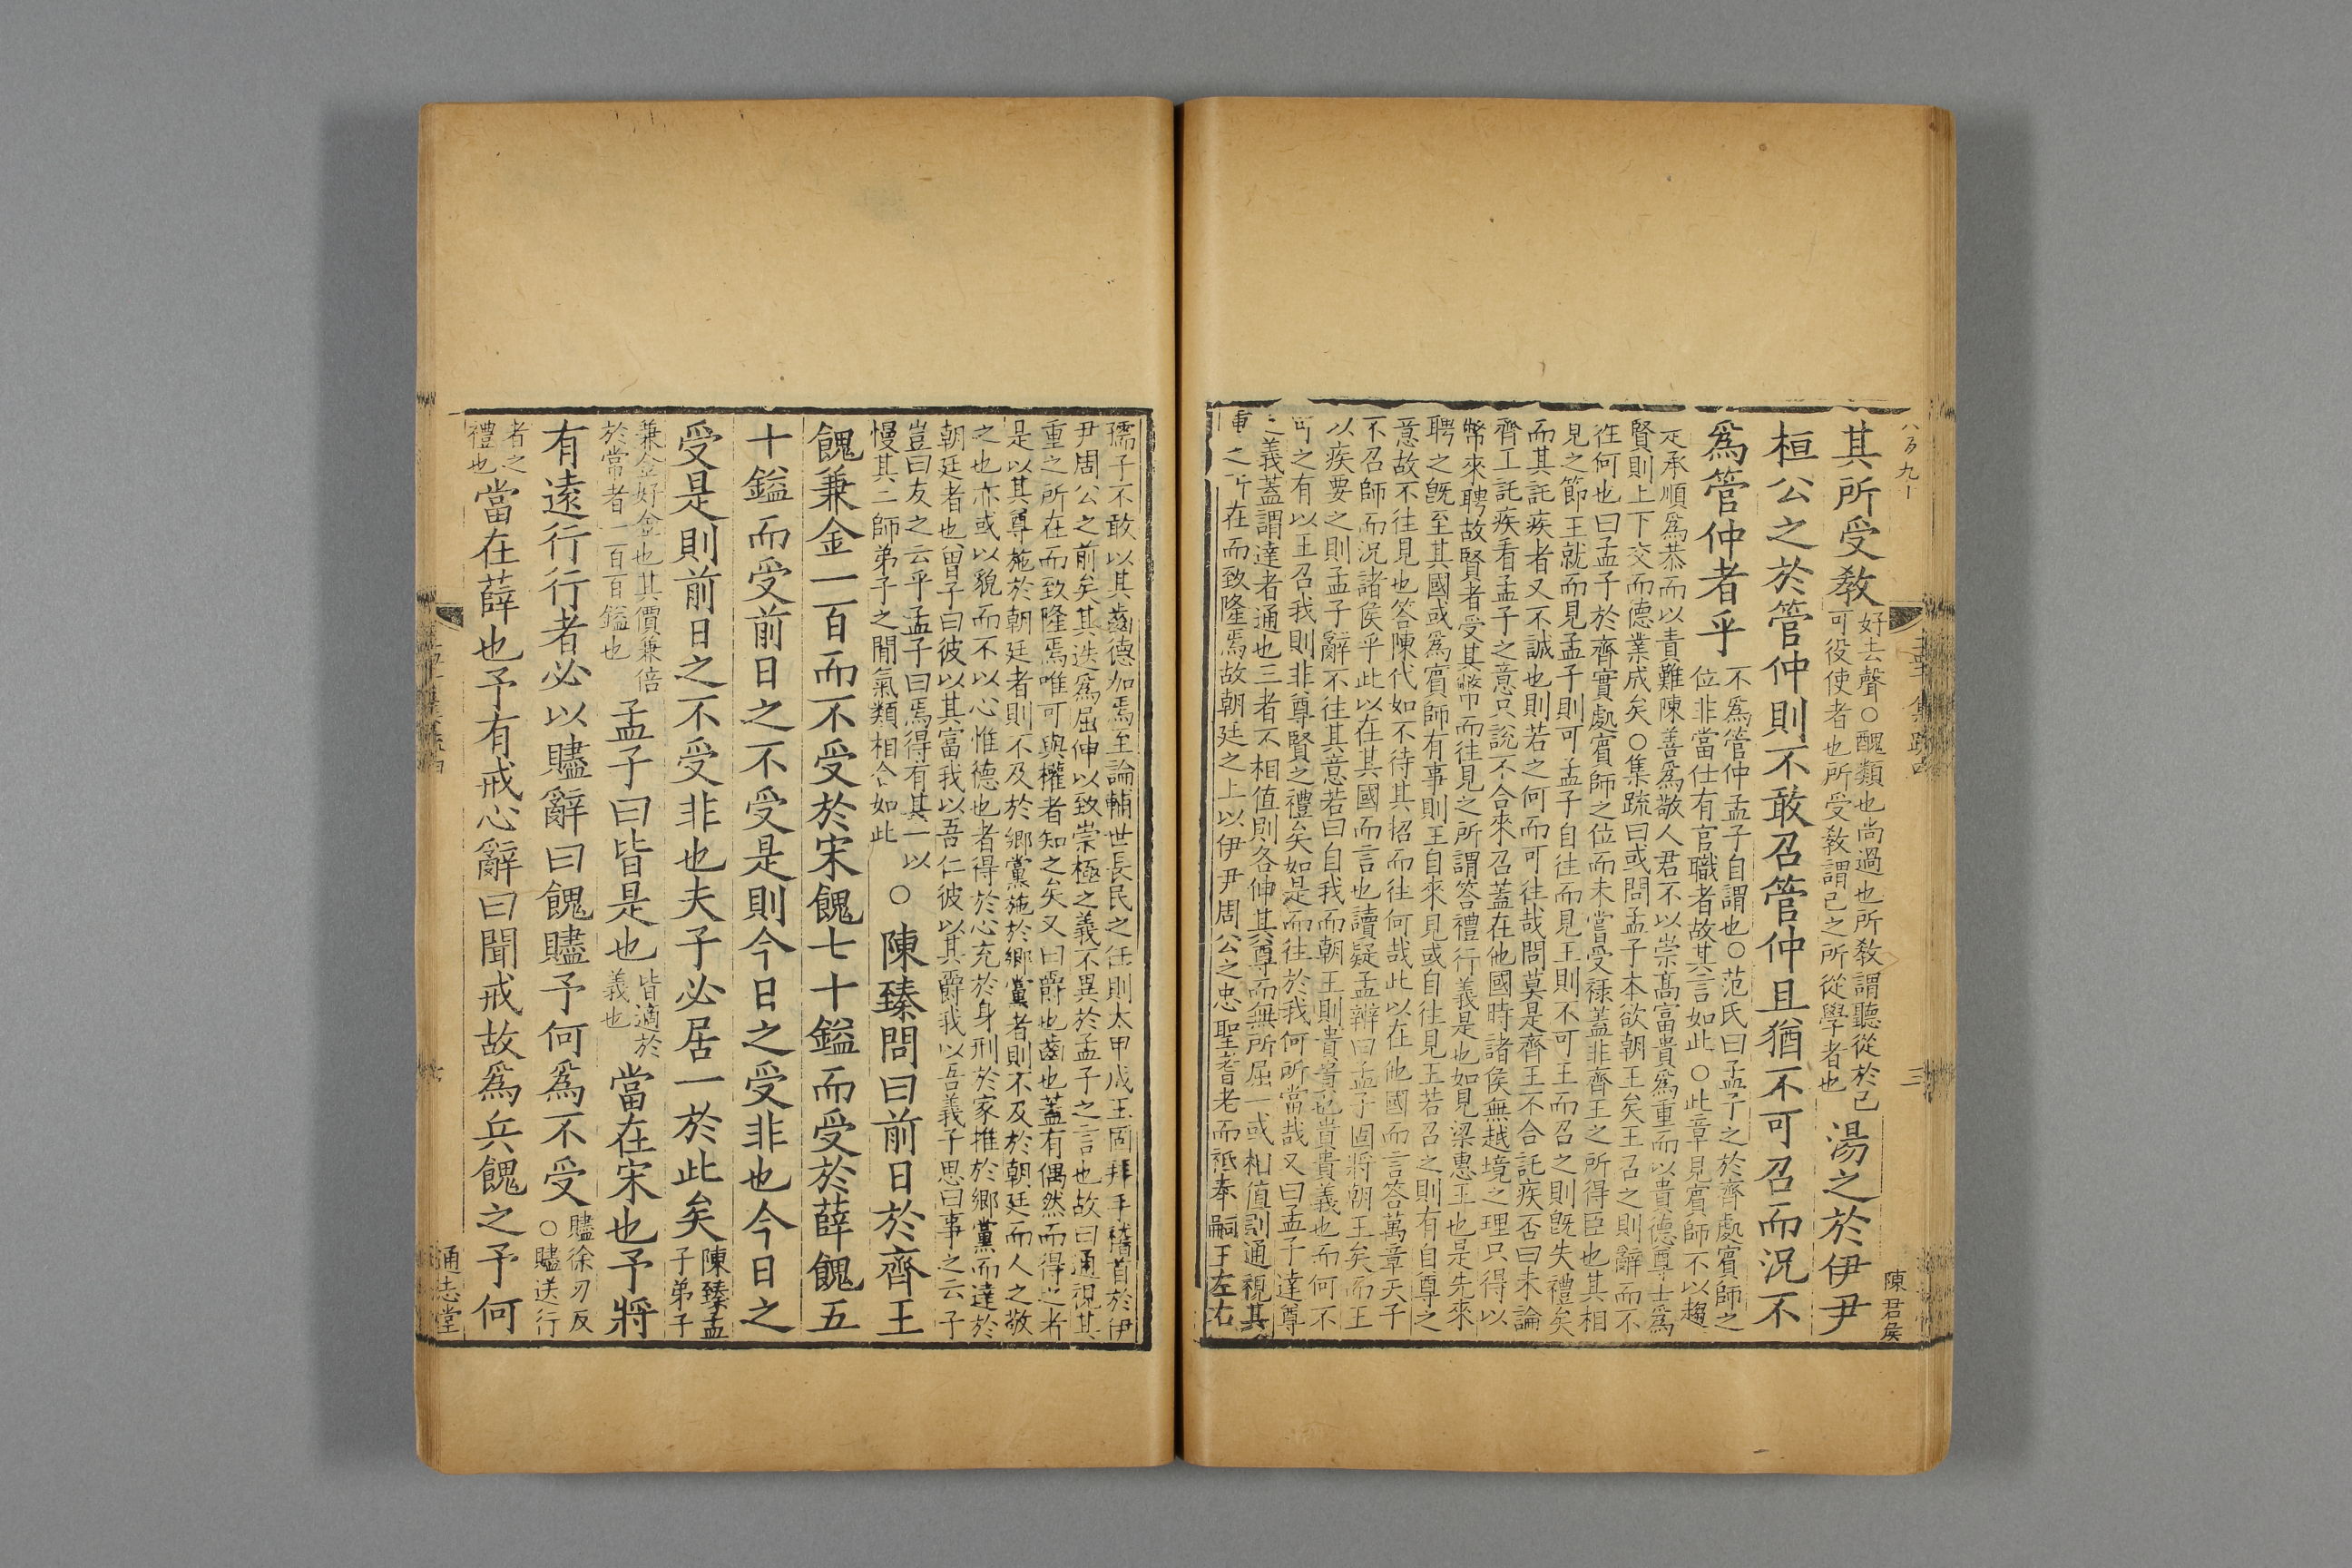 其所受教好去聲○醜類也尚過也所教謂聽從於己
可役使者也所受教謂己之所從學者也湯之於伊尹
桓公之於管仲則不敢召管仲且猶不可召而況不
爲管仲者乎不爲管仲孟子自謂也○范氏曰孟子之於齊處賓師之
位非當仕有官職者故其言如此○此章見賓師不以趨
走承順爲恭而以責難陳善爲敬人君不以崇高富貴爲重而以貴德尊士爲
賢則上下交而德業成矣○集疏曰或問孟子本欲朝王矣王召之則辭而不
往何也曰孟子於齊實處賓師之位而未嘗受祿蓋非齊王之所得臣也其相
見之節王就而見孟子則可孟子自往而見王則不可王而召之則既失禮矣
而其託疾者又不誠也則若之何而可往哉問莫是齊王不合託疾否曰未論
齊王託疾看孟子之意只說不合來召蓋在他國時諸侯無越境之理只得以
幣來聘故賢者受其幣而往見之所謂答禮行義是也如見梁惠王也是先來
聘之既至其國或爲賓師有事則王自來見或自往見王若召之則有自尊之
意故不往見也答陳代如不待其招而往何哉此以在他國而言答萬章天子
不召師而況諸侯乎此以在其國而言也讀疑孟辯曰孟子固將朝王矣而王
以疾要之則孟子辭不往其意若曰自我而朝王則貴貴也貴貴義也而何不
可之有以王召我則非尊賢之禮矣如是而往於我何所當哉又曰孟子達尊
之義蓋謂達者通也三者不相值則各伸其尊而無所屈一或相值則通視其
重之所在而致隆焉故朝廷之上以伊尹周公之忠聖耆老而祗奉嗣王左右
陳君侯
三
孺子不敢以其齒德加焉至論輔世長民之任則太甲成王固拜手稽首於伊
尹周公之前矣其迭爲屈伸以致崇極之義不異於孟子之言也故曰通視其
重之所在而致隆焉唯可與權者知之矣又曰爵也齒也蓋有偶然而得之者
是以其尊施於朝廷者則不及於鄉黨施於鄉黨者則不及於朝廷而人之敬
之也亦或以貌而不以心惟德也者得於心充於身刑於家推於鄉黨而達於
朝廷者也曾子曰彼以其富我以吾仁彼以其爵我以吾義子思曰事之云乎
豈曰友之云乎孟子曰焉得有其一以
慢其二師弟子之間氣類相合如此○陳臻問曰前日於齊王
餽兼金一百而不受於宋餽七十鎰而受於薛餽五
十鎰而受前日之不受是則今日之受非也今日之
受是則前日之不受非也夫子必居一於此矣陳臻孟
子弟子
兼金好金也其價兼倍
於常者一百百鎰也孟子曰皆是也皆適於
義也當在宋也予將
有遠行行者必以贐辭曰餽贐予何爲不受贐徐刃反
○贐送行
者之
禮也當在薛也予有戒心辭曰聞戒故爲兵餽之予何
通志堂